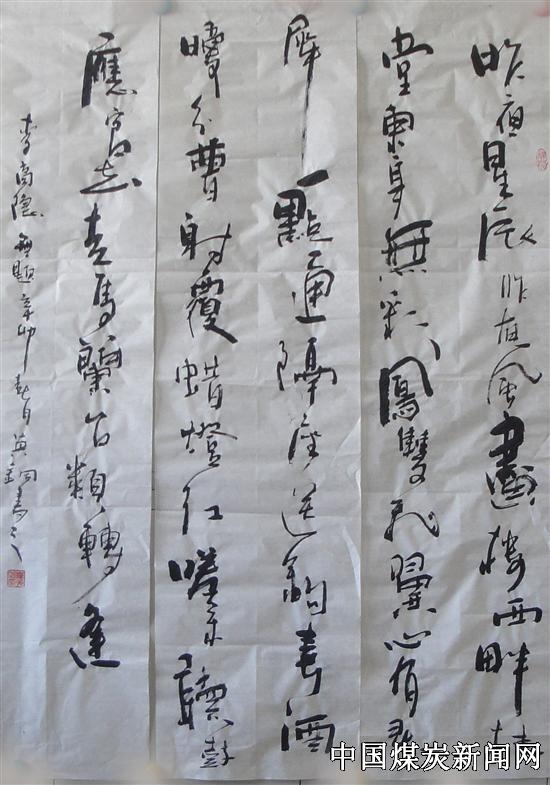 昨夜星辰昨夜風畫樓西畔桂
堂東身無彩鳳雙飛翼心有靈
犀一點通隔座送鈎春酒
暖分曹射覆蜡燈红嗟余聽鼓
應官去走馬蘭台類轉逢
李商隐無題辛卯春月黄書之
中国煤炭新闻网